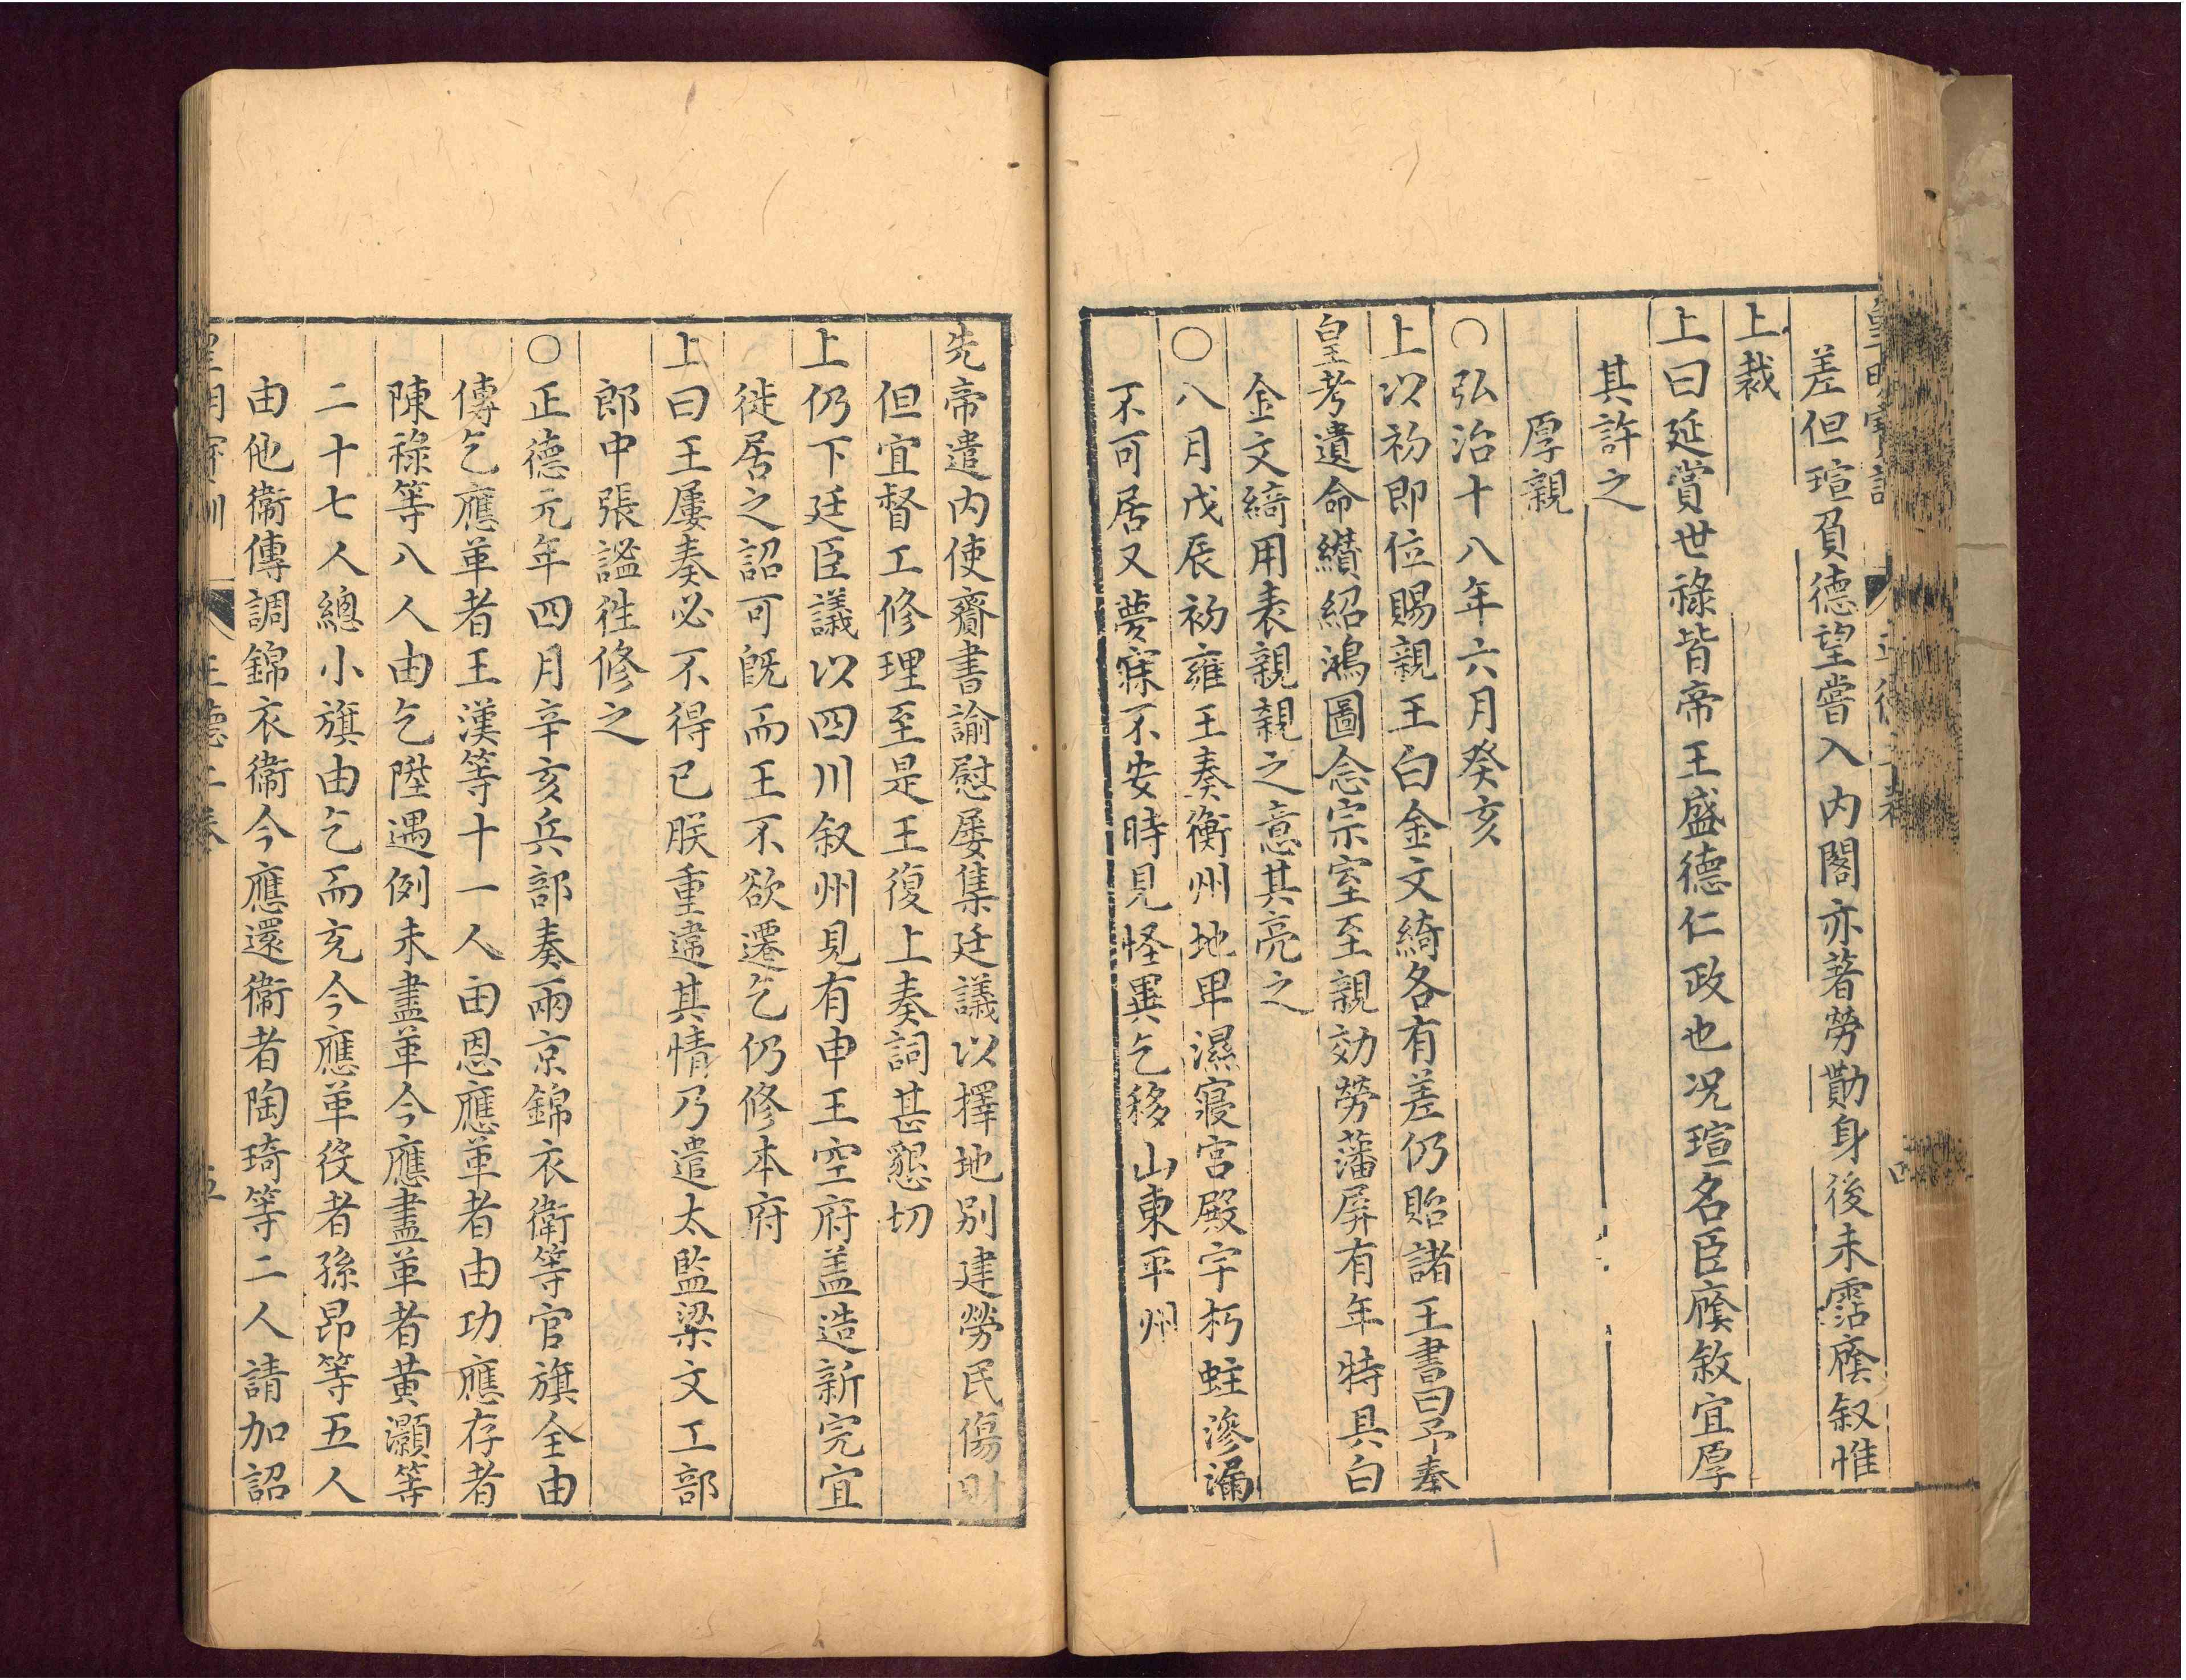 差但瑄負德望嘗入內閣亦著勞勩身後未霑廕叙惟
上裁
上曰延賞世祿皆帝王盛德仁政也况瑄名臣廕敘宜厚
其許之
厚親
○弘治十八年六月癸亥
上以初即位賜親王白金文綺各有差仍貽諸王書曰予奉
皇考遺命纉紹鴻圖念宗室至親効勞藩屏有年特具白
金文綺用表親親之意其亮之
○八月戊辰初雍王奏衡州地卑濕寢宮殿宇朽蛀滲漏
不可居又夢寐不安時見怪異乞移山東平州
先帝遣內使齎書諭慰屡集廷議以擇地別建勞民傷財
但宜督工修理至是王復上奏詞甚懇切
上仍下廷臣議以四川叙州見有申王空府盖造新完宜
徙居之詔可旣而王不欲遷乞仍修本府
上曰王屢奏必不得已朕重違其情乃遣太監梁文工部
郎中張謐徃修之
○正德元年四月辛亥兵部奏兩京錦衣衛等官旗全由
傳乞應革者王漢等十一人由恩應革者由功應存者
陳祿等八人由乞陞遇例未盡革今應盡革者黄灝等
二十七人總小旗由乞而充今應革役者孫昂等五人
由他衛傳調錦衣衛今應還衛者陶琦等二人請加詔
皇明寶訓 正德二卷 五